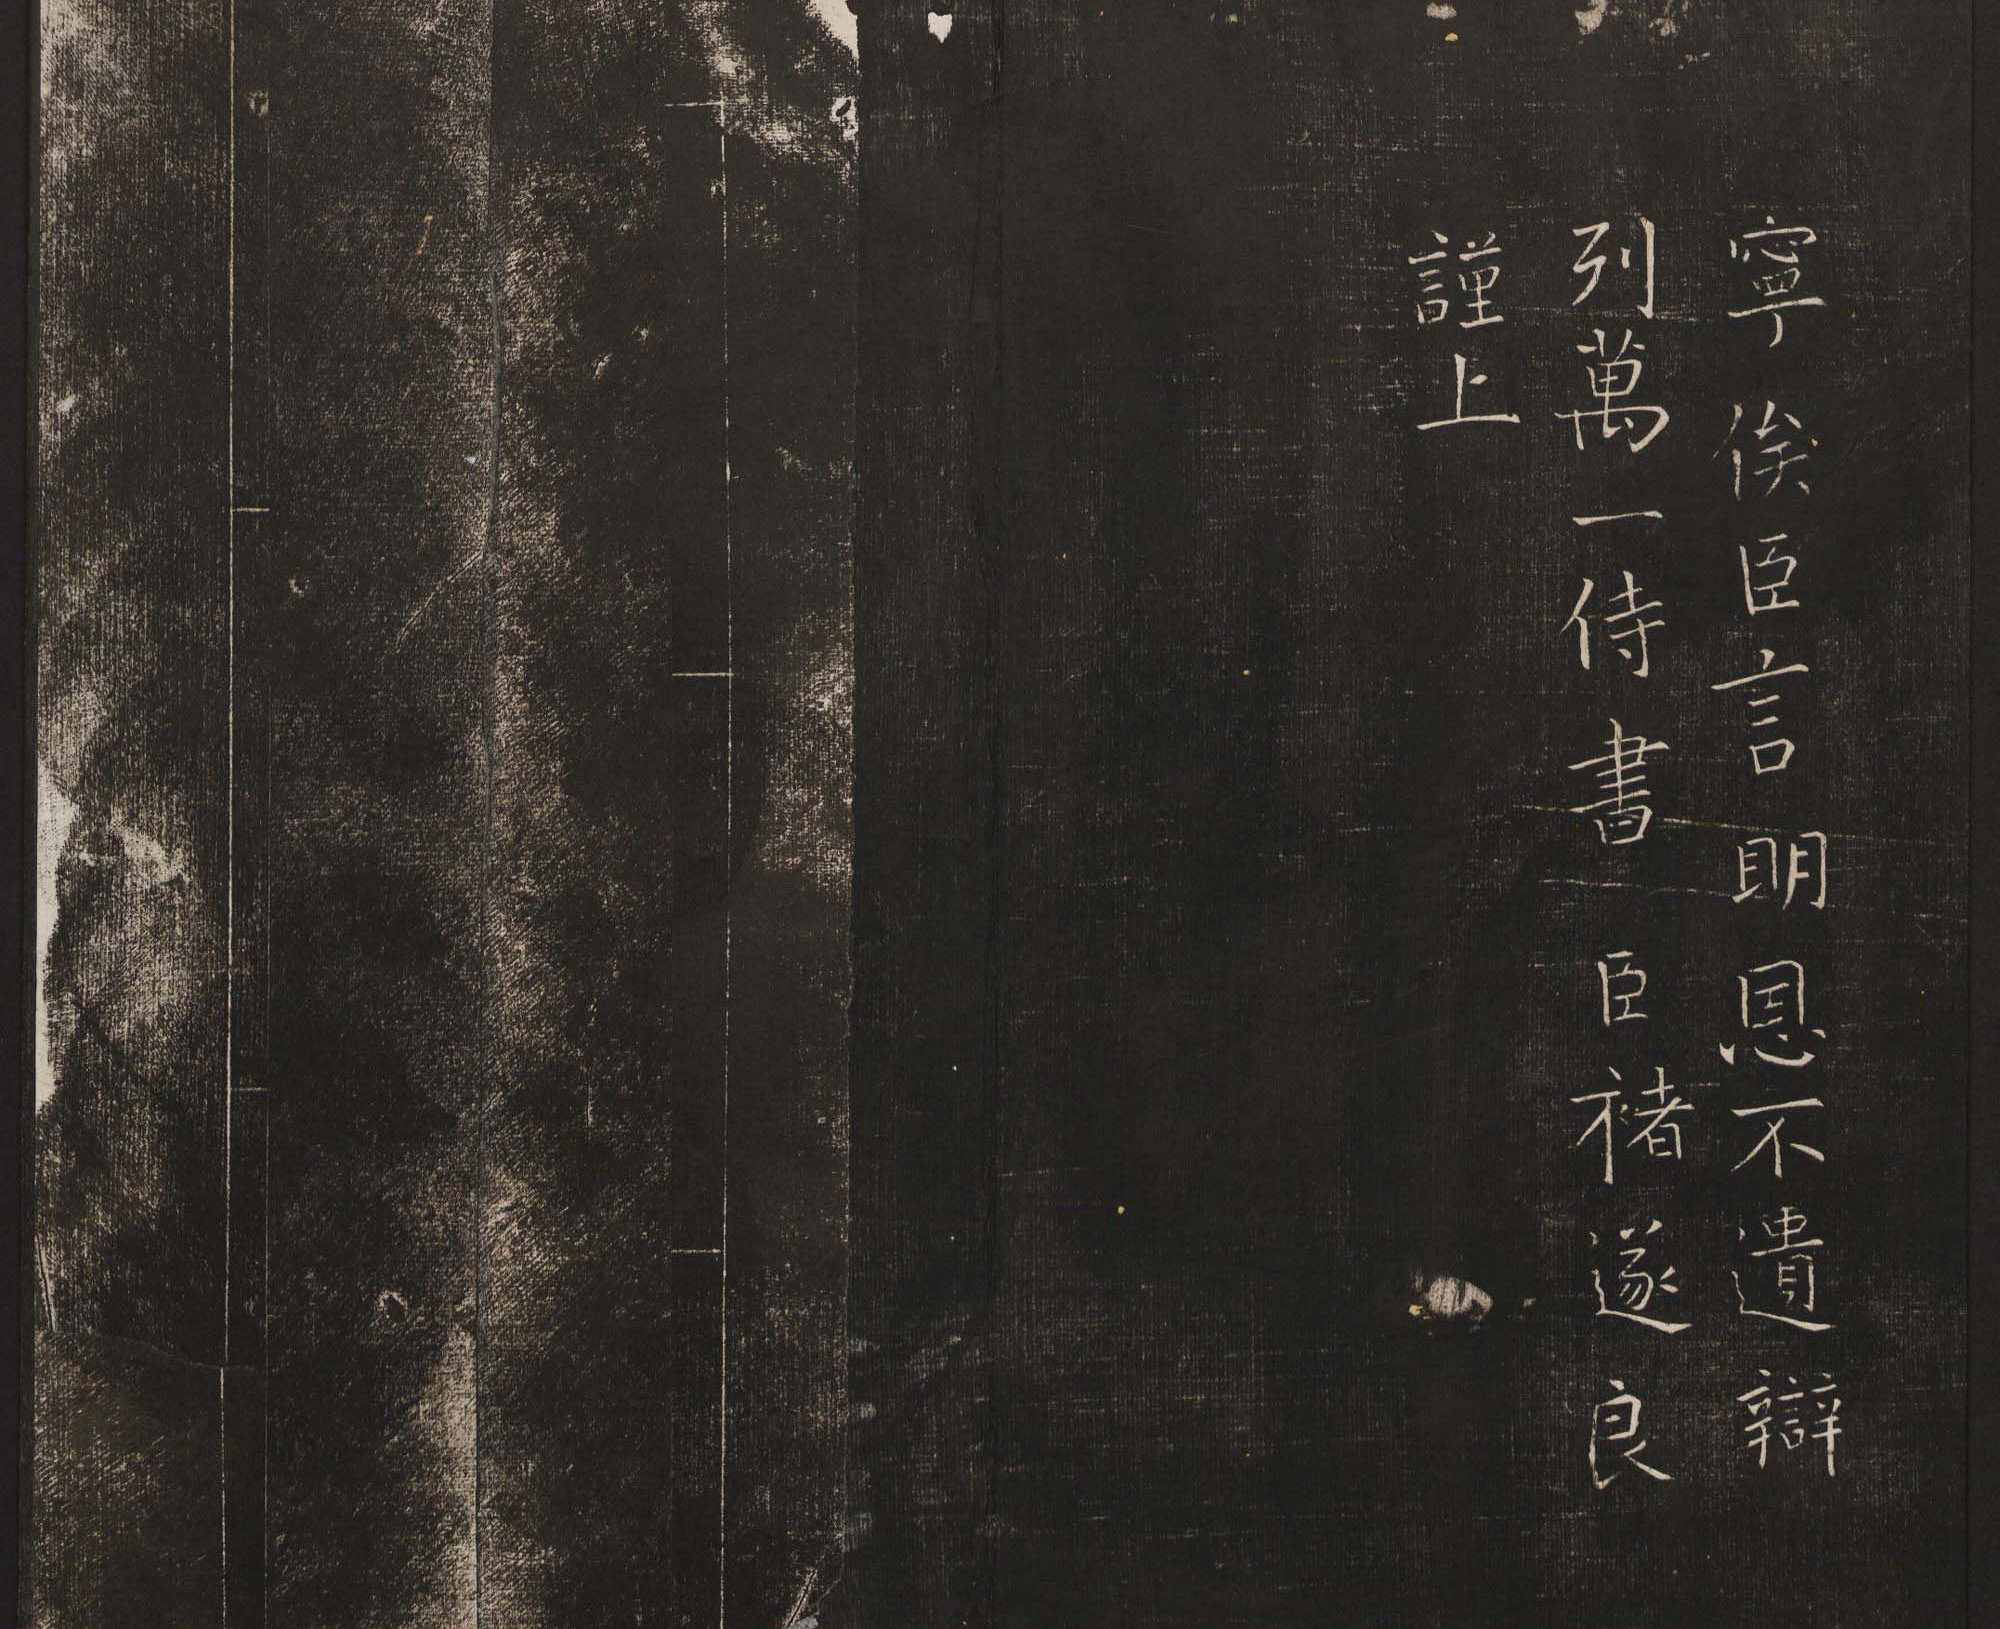 寧俟臣言明恩不遺辯
列萬一侍書臣褚遂良
謹上